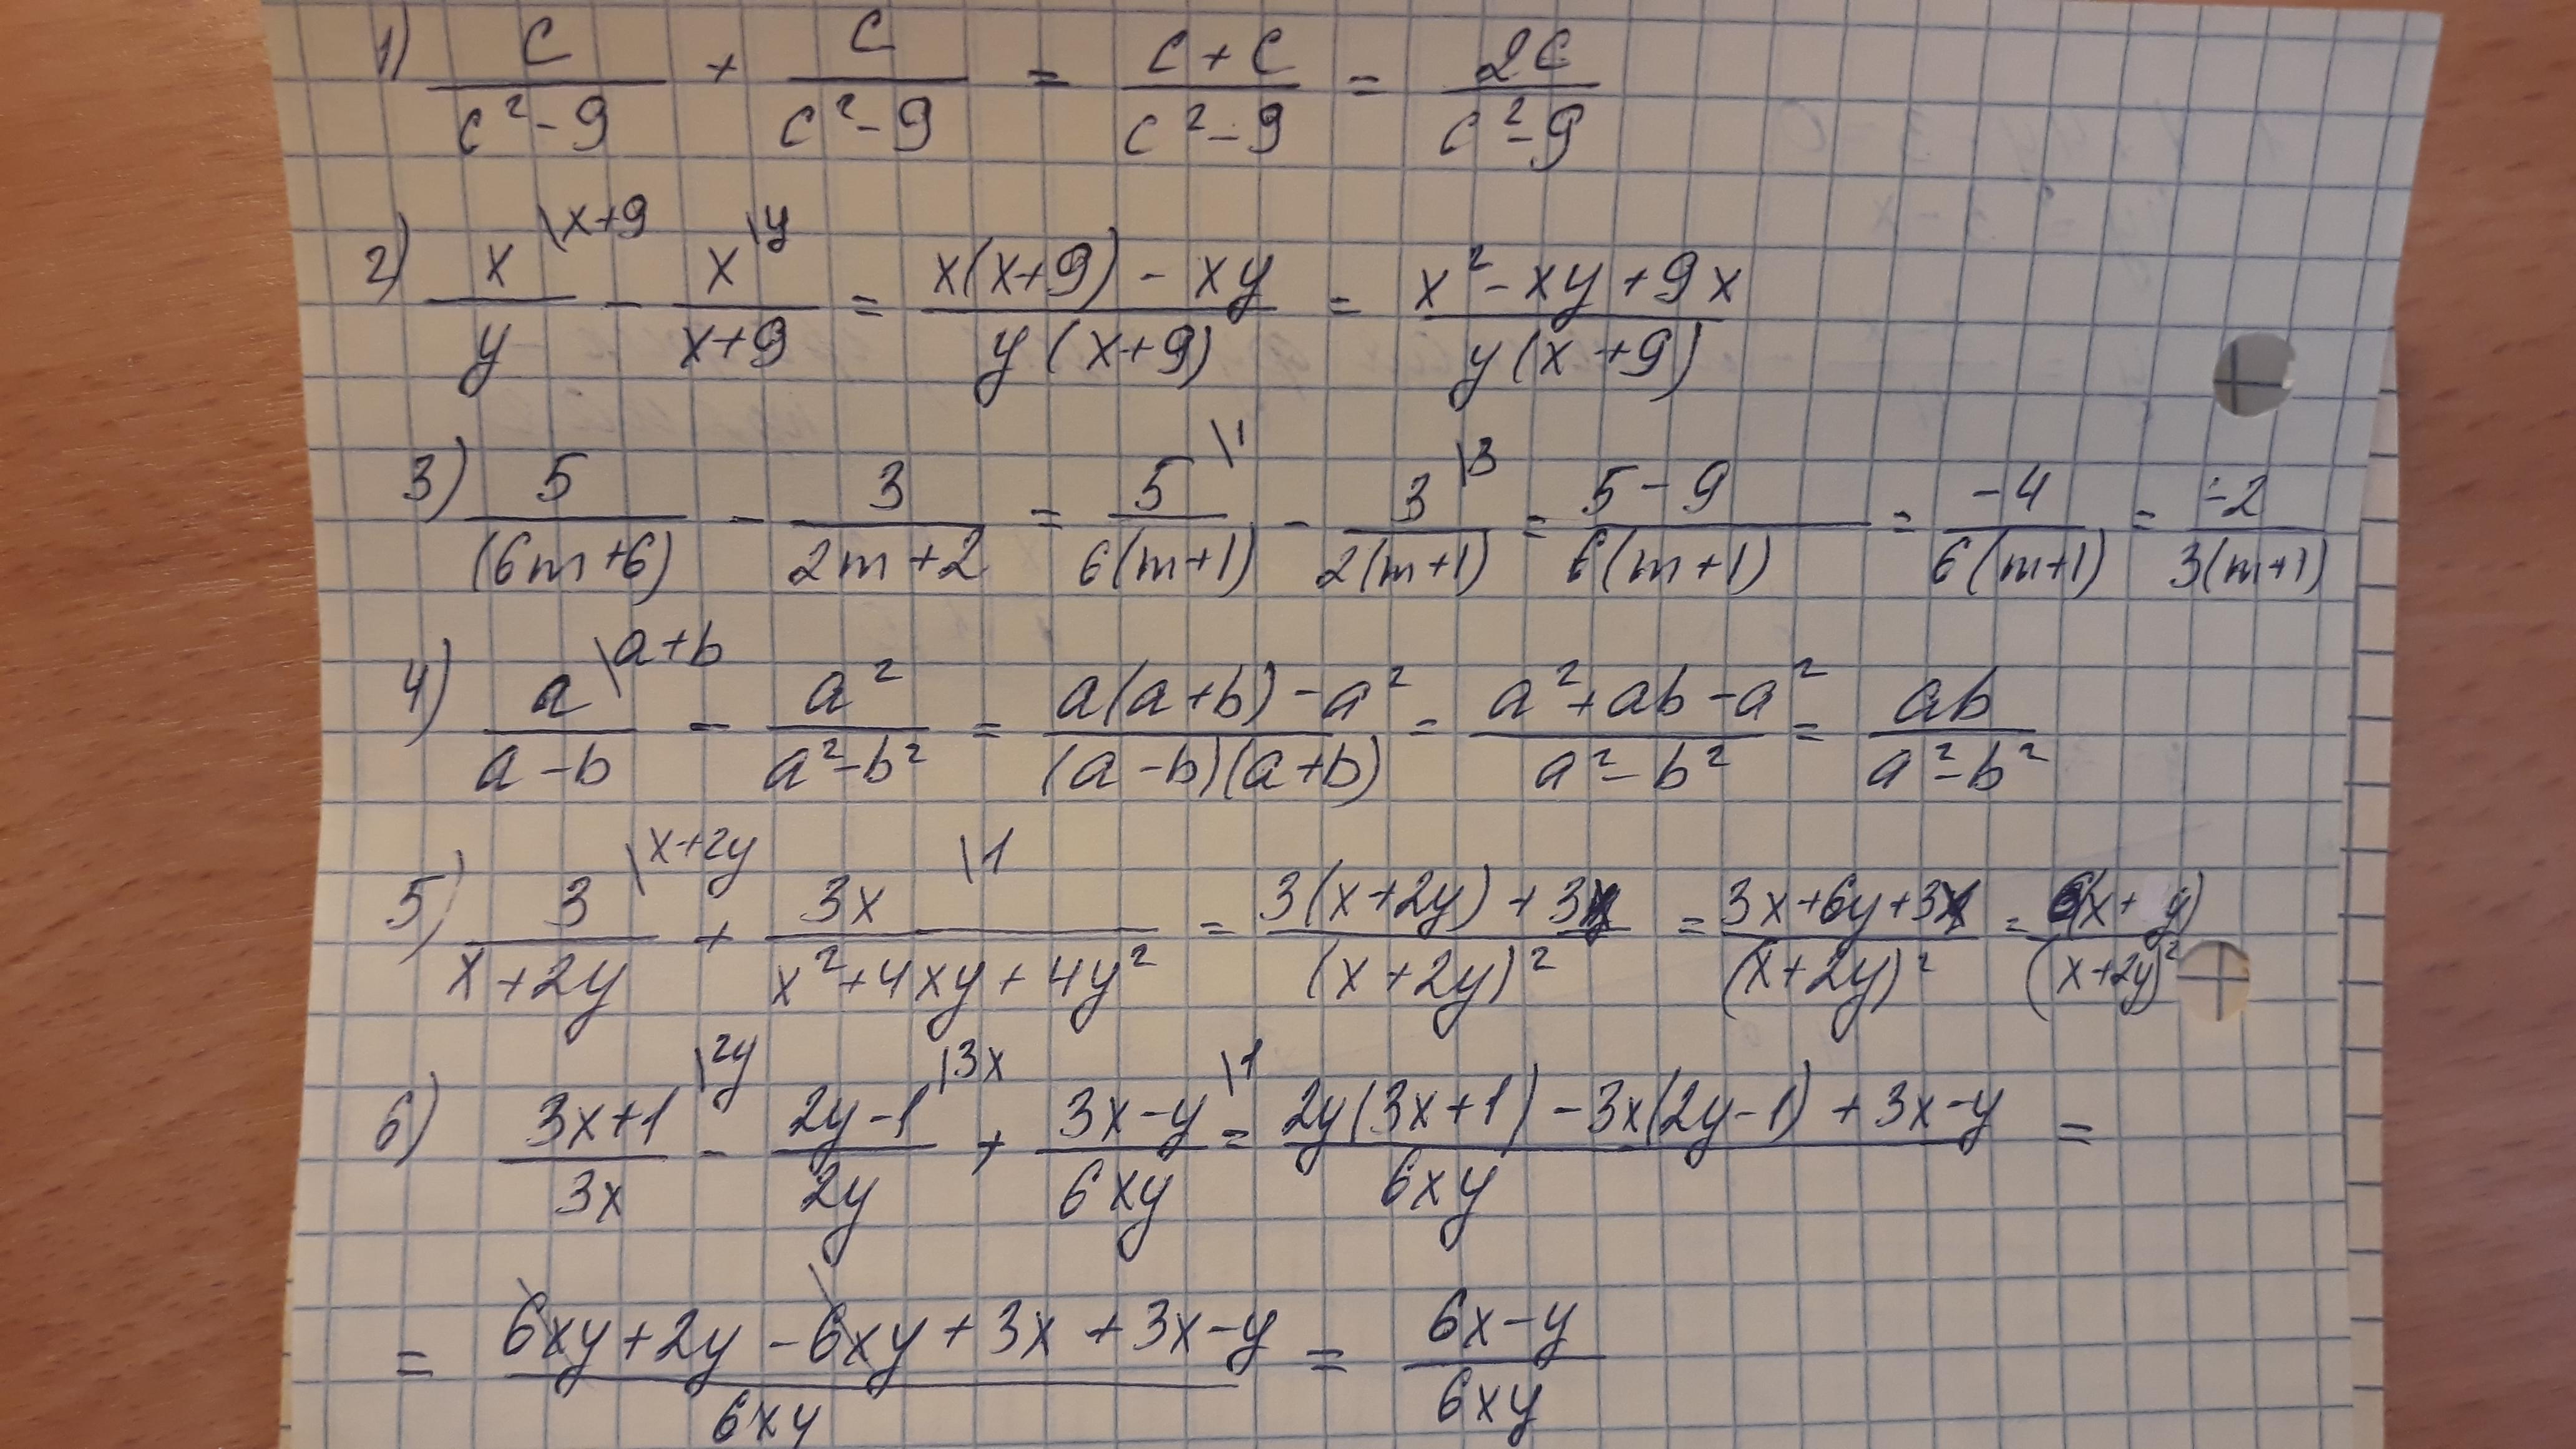 1) c/(c²-9) + c/(c²-9) = (c+c)/(c²-9) = 2c/(c²-9)
2) x\x+9/y - x\y/(x+9) = (x(x+9) - xy)/(y(x+9)) = (x²-xy+9x)/(y(x+9))
3) 5/(6m+6) - 3/(2m+2) = 5\1/(6(m+1)) - 3\3/(2(m+1)) = (5-9)/(6(m+1)) = -4/(6(m+1)) = -2/(3(m+1))
4) a\a+b/(a-b) - a²/(a²-b²) = (a(a+b)-a²)/((a-b)(a+b)) = (a²+ab-a²)/(a²-b²) = ab/(a²-b²)
5) 3\x+2y/(x+2y) + 3x\1/(x²+4xy+4y²) = (3(x+2y)+3x)/(x+2y)² = (3x+6y+3x)/(x+2y)² = 6(x+y)/(x+2y)²
6) (3x+1)\2y/3x - (2y-1)\3x/2y + (3x-y)\1/6xy = (2y(3x+1)-3x(2y-1)+3x-y)/6xy =
= (6xy+2y-6xy+3x+3x-y)/6xy = (6x-y)/6xy